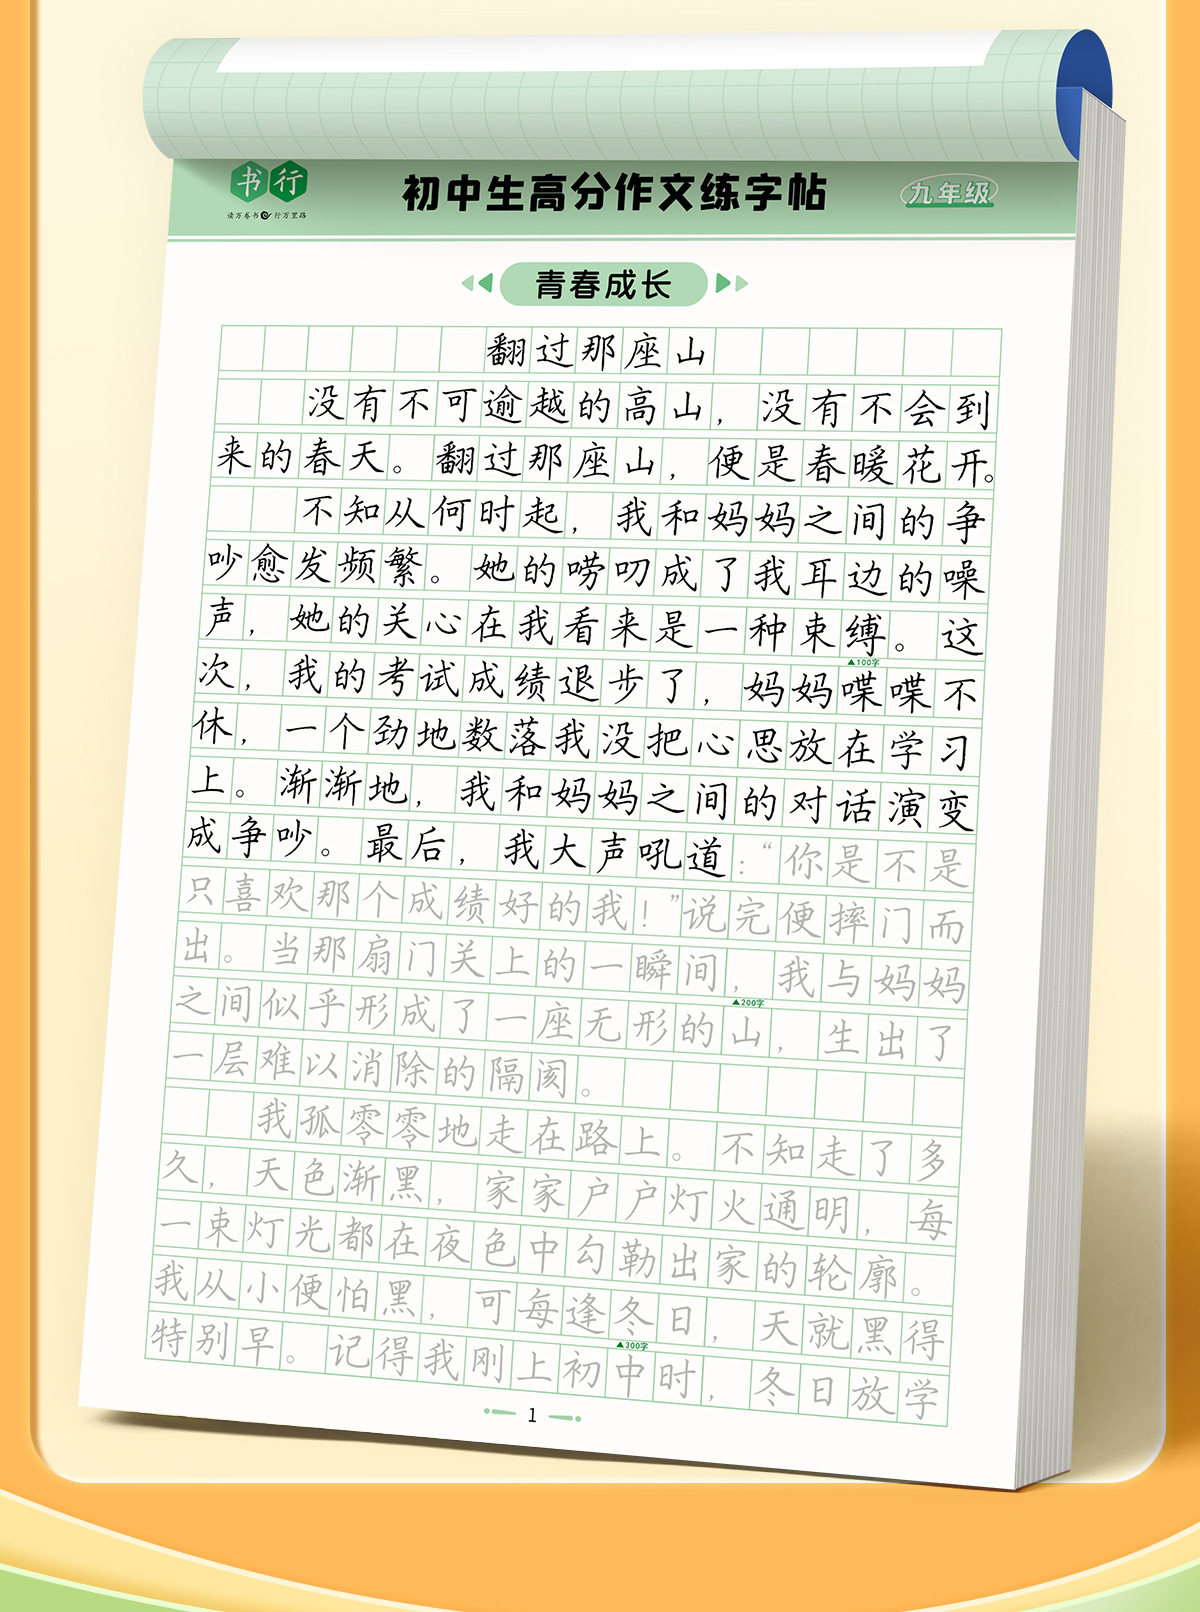 书行
读万卷书 行万里路
初中生高分作文练字帖
九年级
青春成长
翻过那座山
没有不可逾越的高山，没有不会到
来的春天。翻过那座山，便是春暖花开。
不知从何时起，我和妈妈之间的争
吵愈发频繁。她的唠叨成了我耳边的噪
声，她的关心在我看来是一种束缚。这
▲100字
次，我的考试成绩退步了，妈妈喋喋不
休，一个劲地数落我没把心思放在学习
上。渐渐地，我和妈妈之间的对话演变
成争吵。最后，我大声吼道：“你是不是
只喜欢那个成绩好的我！”说完便摔门而
出。当那扇门关上的一瞬间，我与妈妈
▲200字
之间似乎形成了一座无形的山，生出了
一层难以消除的隔阂。
我孤零零地走在路上。不知走了多
久，天色渐黑，家家户户灯火通明，每
一束灯光都在夜色中勾勒出家的轮廓。
我从小便怕黑，可每逢冬日，天就黑得
▲300字
特别早。记得我刚上初中时，冬日放学
1